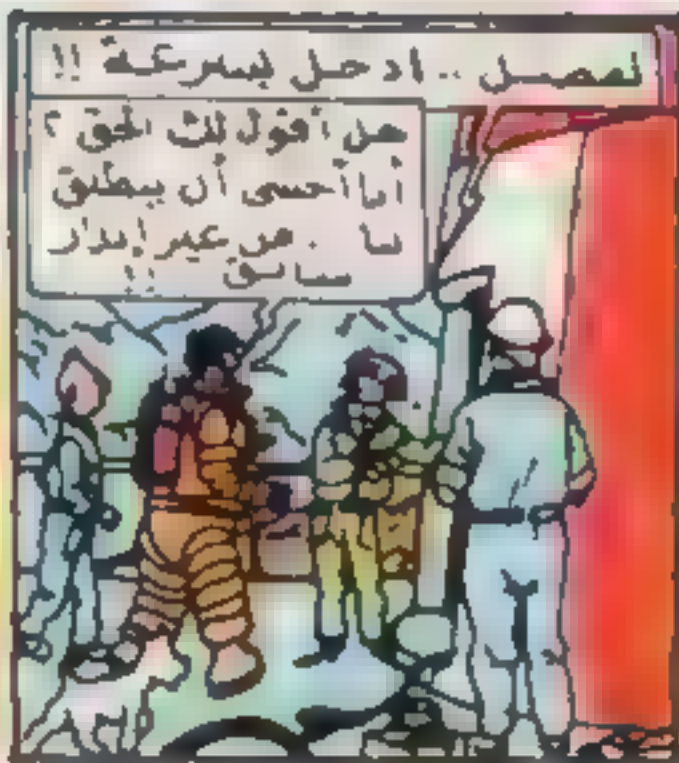 تفضل .. ادخل بسرعة !!
هل أقول لك الحق ؟
أنا أخشى أن ينطلق
بنا . من غير إنذار
سابق !!